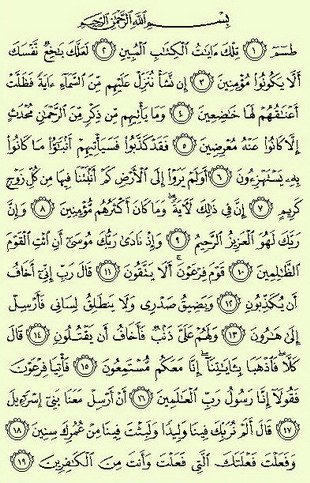 بِسْمِ اللَّهِ الرَّحْمَٰنِ الرَّحِيمِ
طسٓمٓ ١ تِلْكَ ءَايَٰتُ الْكِتَٰبِ الْمُبِينِ ٢ لَعَلَّكَ بَٰخِعٌ نَّفْسَكَ
أَلَّا يَكُونُوا۟ مُؤْمِنِينَ ٣ إِن نَّشَأْ نُنَزِّلْ عَلَيْهِم مِّنَ السَّمَآءِ ءَايَةً فَظَلَّتْ
أَعْنَٰقُهُمْ لَهَا خَٰضِعِينَ ٤ وَمَا يَأْتِيهِم مِّن ذِكْرٍ مِّنَ الرَّحْمَٰنِ مُحْدَثٍ
إِلَّا كَانُوا۟ عَنْهُ مُعْرِضِينَ ٥ فَقَدْ كَذَّبُوا۟ فَسَيَأْتِيهِمْ أَنۢبَٰٓؤُا۟ مَا كَانُوا۟
بِهِۦ يَسْتَهْزِءُونَ ٦ أَوَلَمْ يَرَوْا۟ إِلَى الْأَرْضِ كَمْ أَنۢبَتْنَا فِيهَا مِن كُلِّ زَوْجٍ
كَرِيمٍ ٧ إِنَّ فِى ذَٰلِكَ لَءَايَةً ۖ وَمَا كَانَ أَكْثَرُهُم مُّؤْمِنِينَ ٨ وَإِنَّ
رَبَّكَ لَهُوَ الْعَزِيزُ الرَّحِيمُ ٩ وَإِذْ نَادَىٰ رَبُّكَ مُوسَىٰٓ أَنِ ائْتِ الْقَوْمَ
الظَّٰلِمِينَ ١٠ قَوْمَ فِرْعَوْنَ ۚ أَلَا يَتَّقُونَ ١١ قَالَ رَبِّ إِنِّىٓ أَخَافُ
أَن يُكَذِّبُونِ ١٢ وَيَضِيقُ صَدْرِى وَلَا يَنطَلِقُ لِسَانِى فَأَرْسِلْ
إِلَىٰ هَٰرُونَ ١٣ وَلَهُمْ عَلَىَّ ذَنۢبٌ فَأَخَافُ أَن يَقْتُلُونِ ١٤ قَالَ
كَلَّا ۖ فَاذْهَبَا بِـَٔايَٰتِنَآ ۖ إِنَّا مَعَكُم مُّسْتَمِعُونَ ١٥ فَأْتِيَا فِرْعَوْنَ
فَقُولَآ إِنَّا رَسُولُ رَبِّ الْعَٰلَمِينَ ١٦ أَنْ أَرْسِلْ مَعَنَا بَنِىٓ إِسْرَٰٓءِيلَ
١٧ قَالَ أَلَمْ نُرَبِّكَ فِينَا وَلِيدًا وَلَبِثْتَ فِينَا مِنْ عُمُرِكَ سِنِينَ ١٨
وَفَعَلْتَ فَعْلَتَكَ الَّتِى فَعَلْتَ وَأَنتَ مِنَ الْكَٰفِرِينَ ١٩